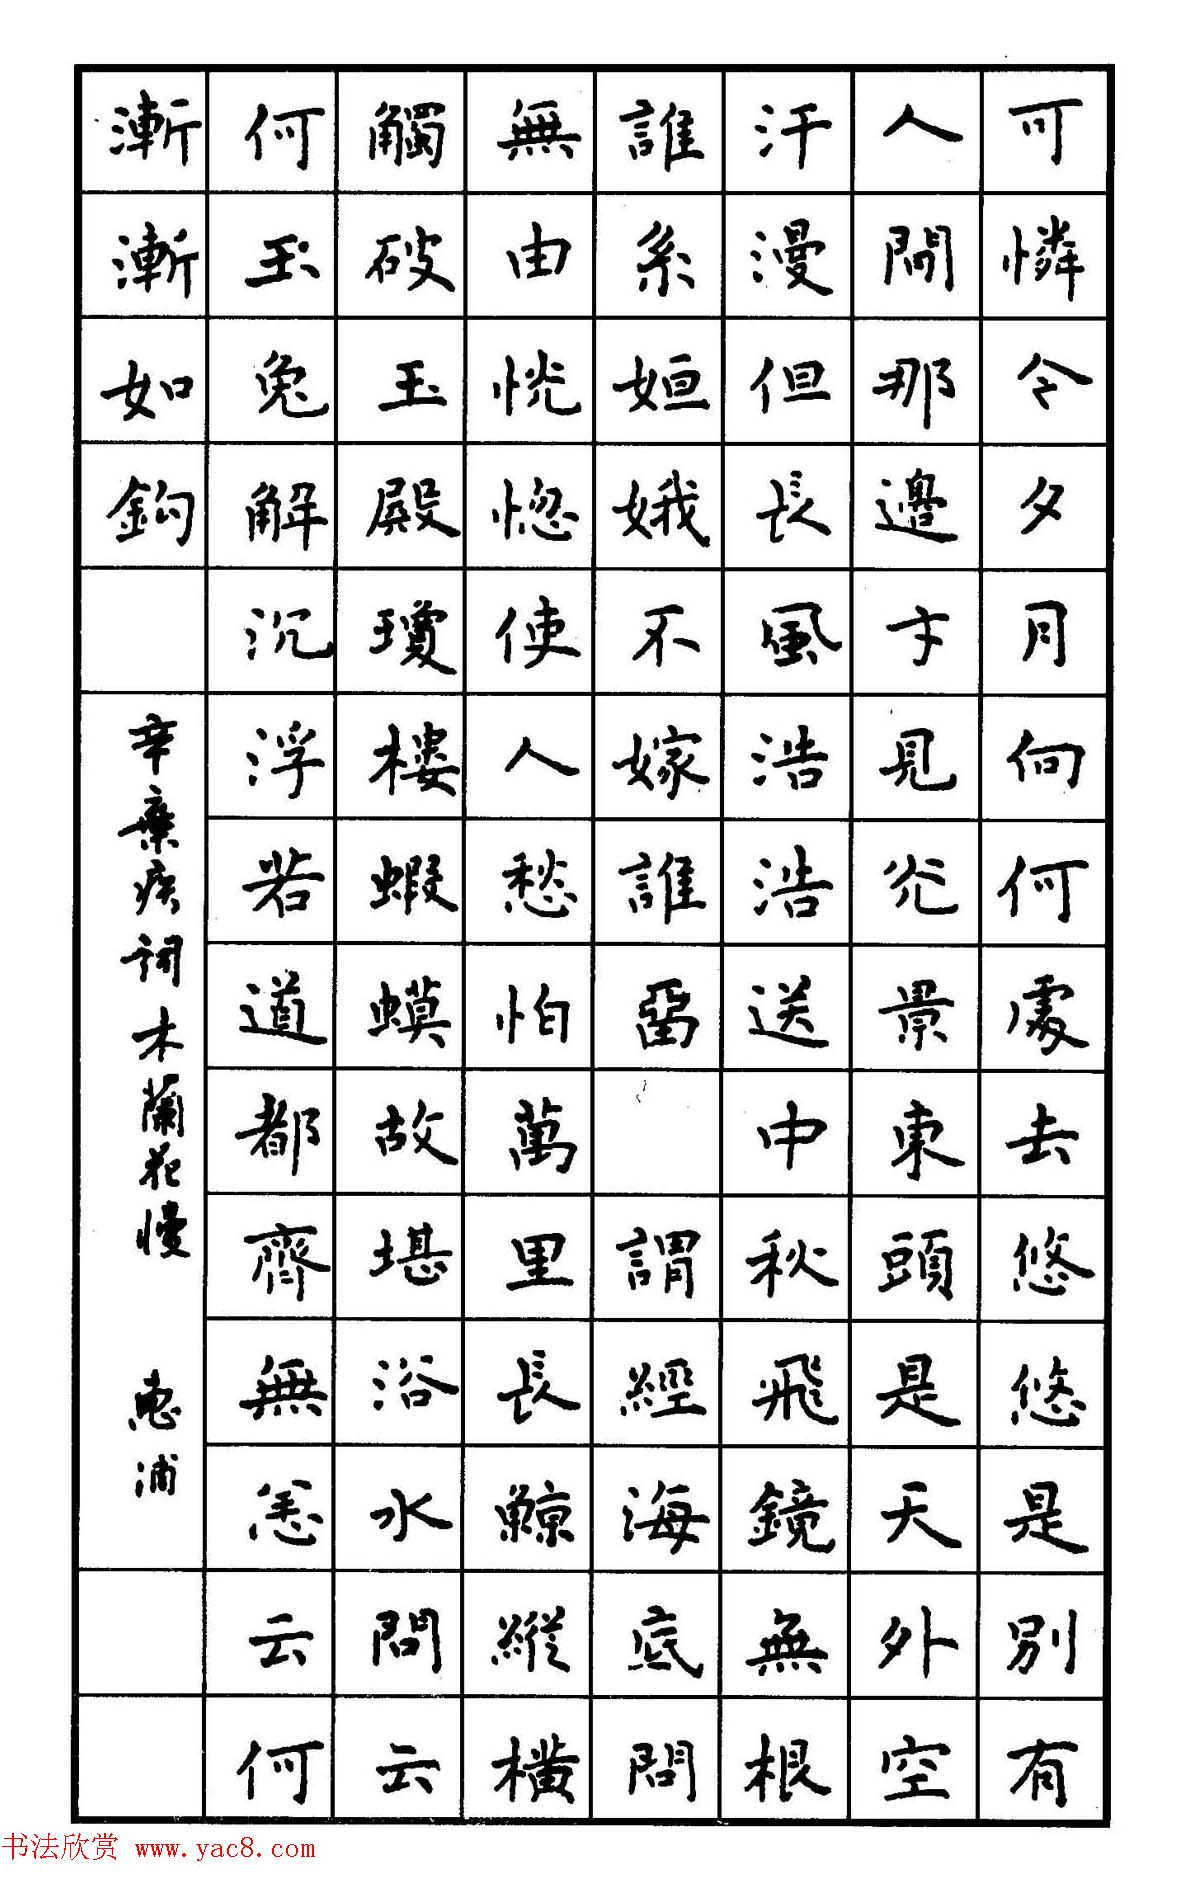 可憐今夕月向何處去悠悠是別有
人間那邊才見光景東頭是天外空
汗漫但長風浩浩送中秋飛鏡無根
誰系姮娥不嫁誰留 謂經海底問
無由恍惚使人愁怕萬里長鯨縱橫
觸破玉殿瓊樓蝦蟆故堪浴水問云
何玉兔解沉浮若道都齊無恙云何
漸漸如鉤
辛棄疾詞木蘭花慢 惠浦
书法欣赏 www.yac8.com